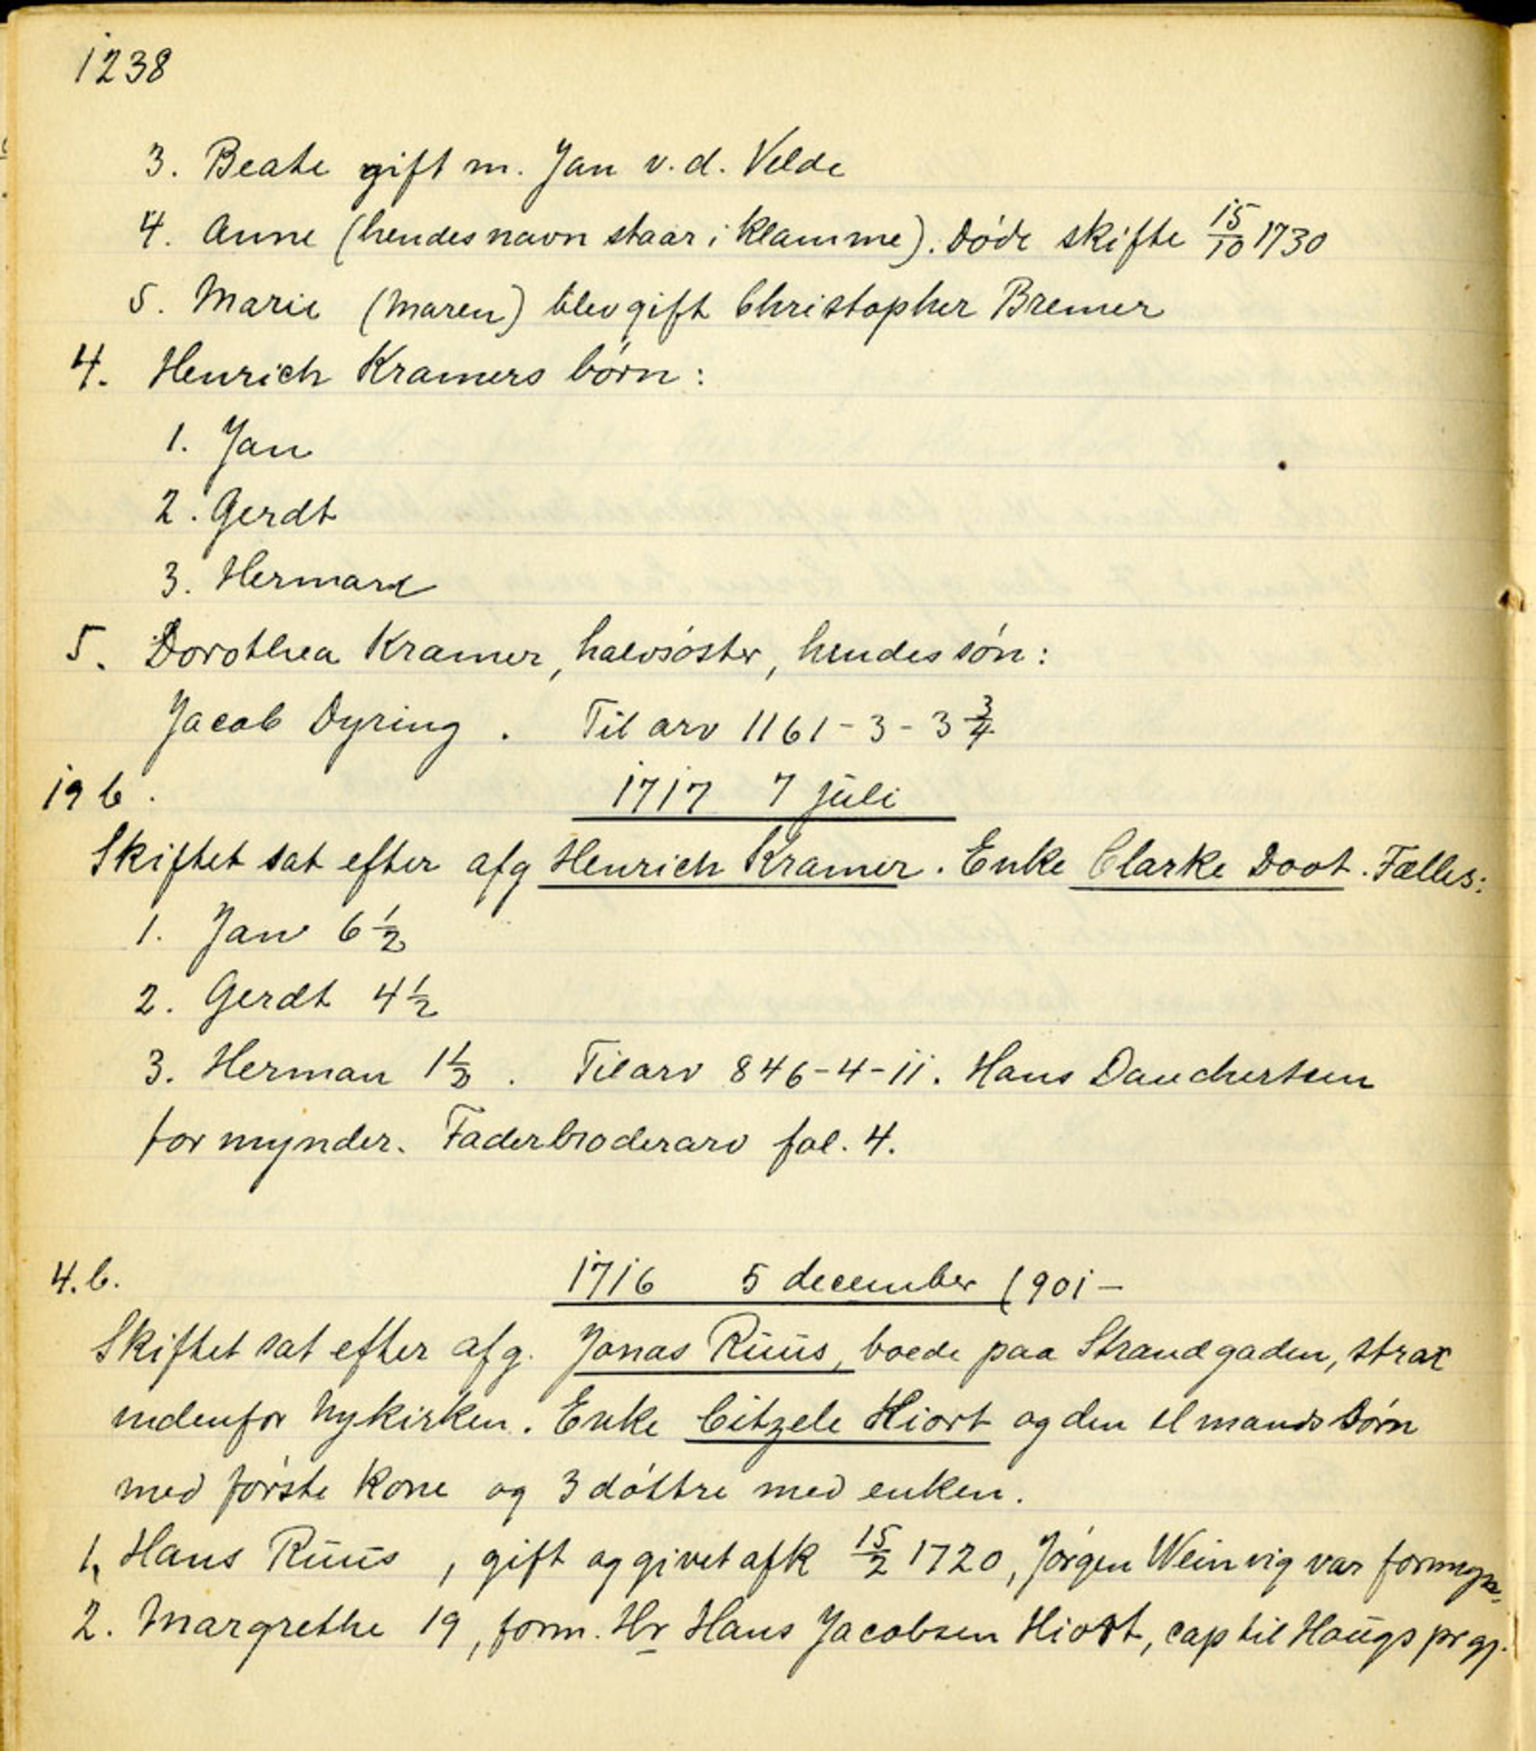 1238
3. Beate gift m. Jan v. d. Velde
4. Anne (hendes navn staar i klamme). Døde skifte 15/10 1730
5. Marie (Maren) blev gift Christopher Bremer
4. Henrich Kramers børn:
1. Jan
2. Gerdt
3. Herman
5. Dorothea Kramer, halvsøster, hendes søn:
Jacob Dyring . Til arv 1161-3-3 3/4
19 b. 1717 7 juli
Skiftet sat efter afg Henrich Kramer. Enke Clarke Doot. Fælles:
1. Jan 6 1/2
2. Gerdt 4 1/2
3. Herman 1 1/2 . Til arv 846-4-11. Hans Danchertsen
formynder. Faderbroderarv fol. 4.
4. b. 1716 5 december (901-
Skiftet sat efter afg. Jonas Ruus, boede paa Strandgaden, strax
indenfor Nykirken. Enke Citzele Hiort og den sl mands børn
med første kone og 3 døttre med enken.
1. Hans Ruus , gift og givet afk 15/2 1720, Jørgen Weinvig var formyn.
2. Margrethe 19, form. Hr Hans Jacobsen Hiort, cap til Haugs prgj.